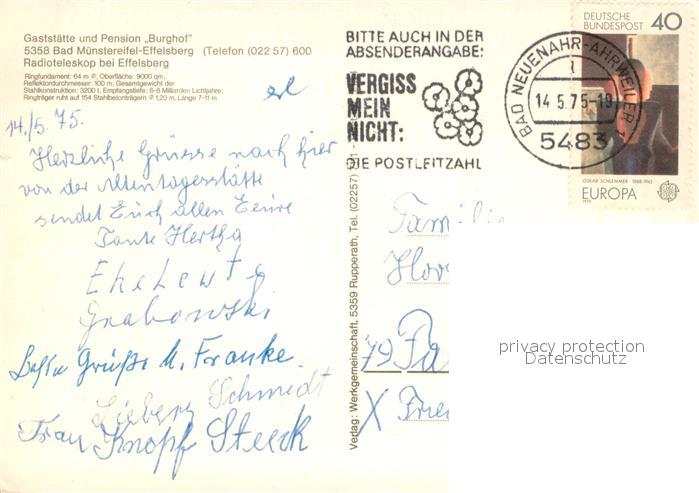 Gaststätte und Pension „Burghof"
5358 Bad Münstereifel-Effelsberg (Telefon (022 57) 600
Radioteleskop bei Effelsberg
Ringfundament: 64 m ∅, Oberfläche: 9000 qm,
Reflektordurchmesser: 100 m, Gesamtgewicht der
Stahlkonstruktion: 3200 t, Empfangstiefe: 6-8 Milliarden Lichtjahre;
Ringträger ruht auf 154 Stahlbetonträgern ∅ 1,20 m, Länge 7-11 m
erl
14./5. 75.
Herzliche Grüsse nach hier
von der Altentagesstätte
sendet Euch allen Eeure
Tante Hertha
Eheleute
Grabowski
Beste Grüße M. Franke
Lieberz Schmidt
Frau Knopf Steeck
BITTE AUCH IN DER
ABSENDERANGABE:
VERGISS
MEIN
NICHT:
DIE POSTLEITZAHL
BAD NEUENAHR-AHRWEILER 1
14.5.75-19
5483
DEUTSCHE
BUNDESPOST
40
OSKAR SCHLEMMER 1888-1943
EUROPA
1975
Verlag: Werkgemeinschaft, 5359 Rupperath, Tel. (02257)
Familie
79
privacy protection
Datenschutz